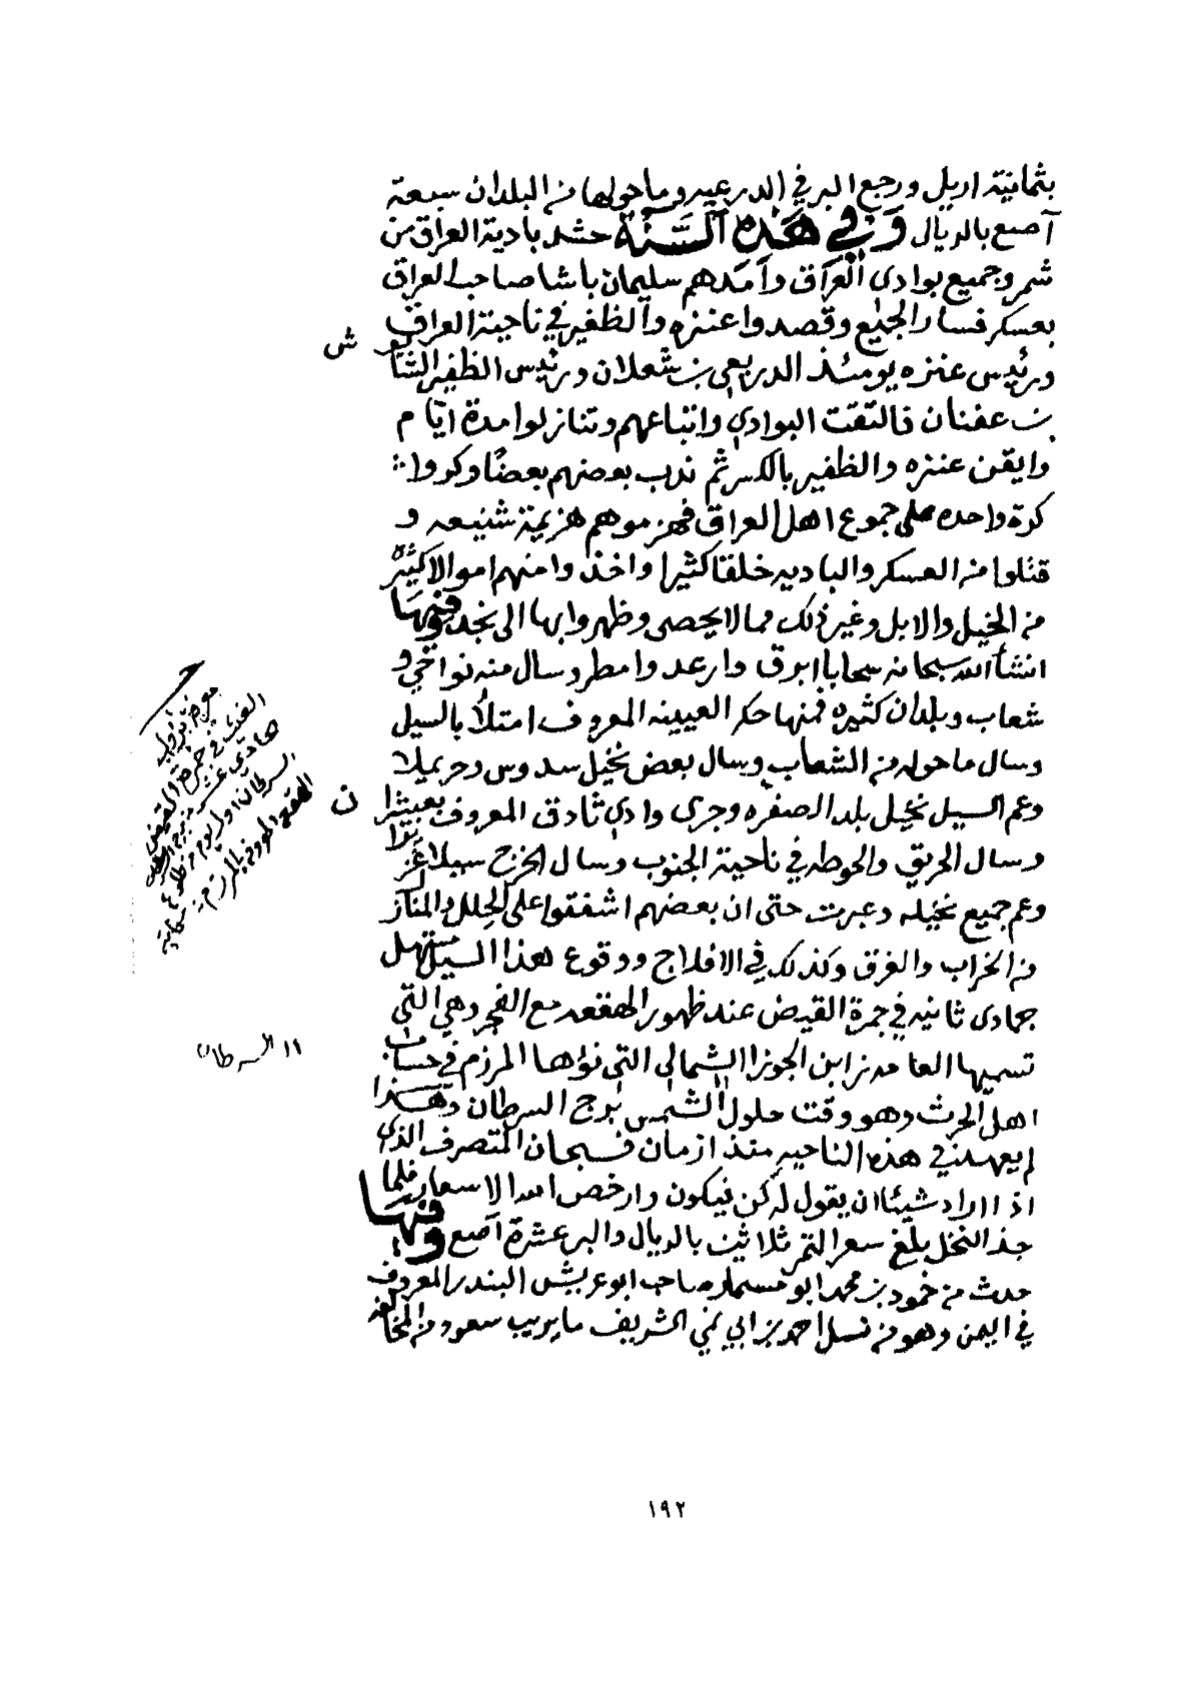 بثمانية اريل ورجع البر في الدرعيه وما حولها من البلدان سبعة
آصع بالريال وفي هذه السنة حشد بادية العراق من
شمر وجميع بوادي العراق وامدهم سليمان باشا صاحب العراق
بعسكر فسار الجميع وقصدوا عنزه والظفير في ناحية العراق
ش
ورئيس عنزه يومئذ الدريعي بن شعلان ورئيس الظفير الشا
بن عفنان فالتقت البوادي واتباعهم وتنازلوا مدة ايام
وايقن عنزه والظفير بالكسر ثم ندب بعضهم بعضا وكروا
كرة واحده على جموع اهل العراق فهزموهم هزيمة شنيعه و
قتلوا من العسكر والباديه خلقا كثيرا واخذوا منهم اموالا كثيرة
من الخيل والابل وغير ذلك مما لا يحصى وظهروا بها الى نجد وفيها
انشأ الله سبحانه سحابا ابرق وارعد وامطر وسال منه نواحي و
شعاب وبلدان كثيره فمنها حكر العيينه المعروف امتلأ بالسيل
وسال ما حوله من الشعاب وسال بعض نخيل سدوس وحريملا
وعم السيل نخيل بلد الصفره وجرى وادي ثادق المعروف بعبيثرا ن
وسال الحريق والحوطه في ناحية الجنوب وسال الخرج سيلا
وعم جميع نخيله وعبرت حتى ان بعضهم اشفقوا على الحلل والمنازل
من الخراب والغرق وكذلك في الافلاج ووقوع هذا السيل مستهل
جمادى ثانيه في جمرة القيض عند ظهور الهقعه مع الفجر وهي التي
تسميها العامه نزا بن الجوزا الشمالي التي نؤها المرزم في حساب
١١ السرطان
اهل الحرث وهو وقت حلول الشمس برج السرطان وهذا
لم يعهد في هذه الناحيه منذ ازمان فسبحان المتصرف الذي
اذا اراد شيئا ان يقول له كن فيكون وارخص الله الاسعار فلما
جذ النخل بلغ سعر التمر ثلاثين بالريال والبر عشرة آصع وفيها
حدث من حمود بن محمد ابو مسمار صاحب ابو عريش البندر المعروف
في اليمن وهو من نسل احمد بن ابي نمي الشريف ما يريب سعود من المخالفه
الغيث في جمرة القيض
السرطان اول يوم من طلوع
الهقعه المعروف بالمرزم
١٩٢